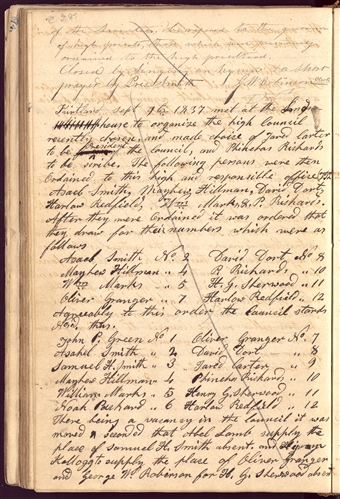 of the
of high priests,
ordained to the high priesthood.
Closed by singing an hymn & a short
prayer by President
Kirtland Sept 9th 1837 met at the Lord's
house to organize the high Council
recently chosen and made choice of Jared Carter
to be president of the council, and Phinehas Richards
to be scribe. The following persons were then
ordained to this high and responsible office, viz
Asael Smith, Mayhew Hillman, David Dort,
Harlow Redfield, Wm Marks & P. Richards.
After they were ordained it was ordered that
they draw for their numbers which were as
follows
Asael Smith No 2 David Dort No 8
Mayhew Hillman " 4 P. Richards " 10
Wm Marks " 5 H. G. Sherwood " 11
Oliver Granger " 7 Harlow Redfield " 12
Agreeably to this order the Council stands
thus.
John P. Green No 1 Oliver Granger No 7
Asahel Smith " 2 David Dort " 8
Samuel H. Smith " 3 Jared Carter " 9
Mayhew Hillman " 4 Phinehas Richards " 10
William Marks " 5 Henry G. Sherwood " 11
Noah Packard " 6 Harlow Redfield " 12
There being a vacancy in the council it was
moved & seconded that Abel Lamb supply the
place of Samuel H. Smith absent, and Hyrum
Kellogg to supply the place of Oliver Granger
and George W. Robinson for H. G. Sherwood absent